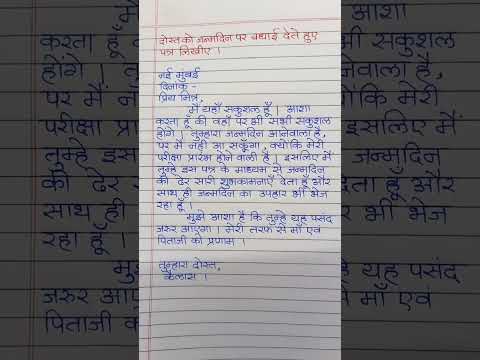 दोस्त को जन्मदिन पर बधाई देते हुए
पत्र लिखीए ।
नई मुंबई
दिनांक -
प्रिय मित्र,
मैं यहाँ सकुशल हूँ । आशा
करता हूँ की वहाँ पर भी सभी सकुशल
होंगे । तुम्हारा जन्मदिन आनेवाला है,
पर मैं नही आ सकूँगा, क्योंकि मेरी
परीक्षा प्रारंभ होने वाली है । इसलिए मैं
तुम्हे इस पत्र के माध्यम से जन्मदिन
की ढेर सारी शुभकामनाएँ देता हूँ और
साथ ही जन्मदिन का उपहार भी भेज
रहा हूँ ।
मुझे आशा है कि तुम्हे यह पसंद
जरुर आएगा । मेरी तरफ से माँ एवं
पिताजी को प्रणाम ।
तुम्हारा दोस्त,
कैलास ।